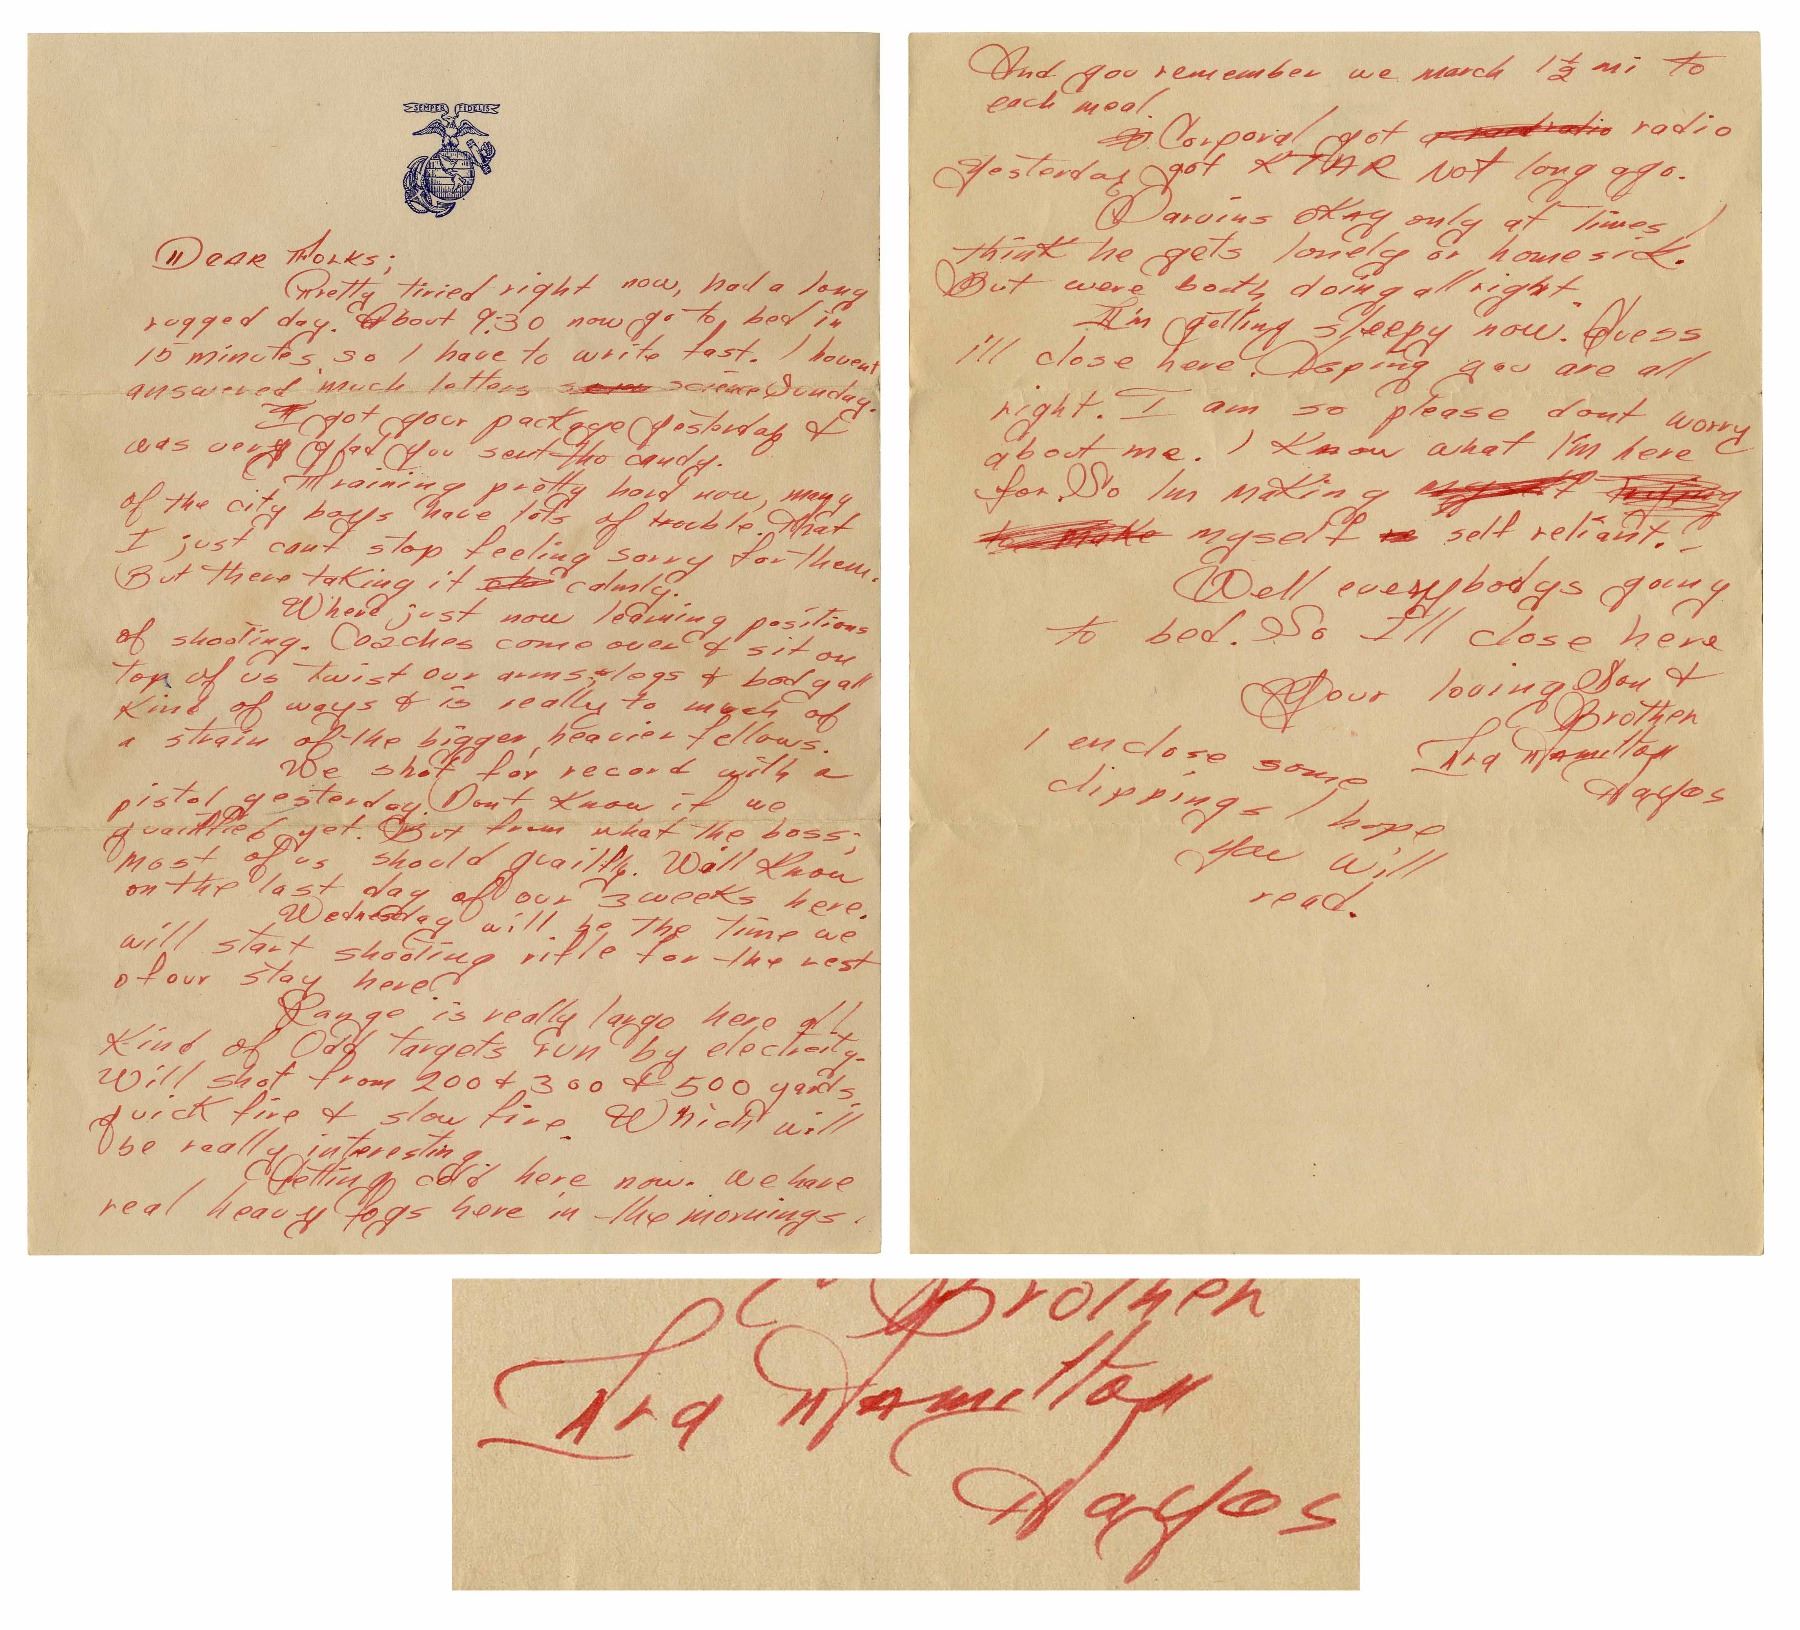 SEMPER FIDELIS
Dear Folks;
Pretty tiried right now, had a long
rugged day. About 9:30 now go to bed in
15 minutes, so I have to write fast. I havent
answered much letters science Sunday.
I got your package yesterday &
was very glad you sent the candy.
Training pretty hard now, many
of the city boys have lots of trouble. That
I just cant stop feeling sorry for them.
But there taking it calmly.
Where just now learning positions
of shooting. Coaches come over & sit on
top of us twist our arms, legs & body all
kind of ways & is really to much of
a strain of the bigger, heavier fellows.
We shot for record with a
pistol yesterday. Dont know if we
quailfied yet. But from what the boss;
most of us should quailfy. Will know
on the last day of our 3 weeks here.
Wednesday will be the time we
will start shooting rifle for the rest
of our stay here.
Range is really large here all
kind of Odd targets run by electricity.
Will shot from 200 & 300 & 500 yards,
quick fire & slow fire. Which will
be really interesting.
Getting cold here now. We have
real heavy fogs here in the mornings.
And you remember we march 1 1/2 mi to
each meal.
Corporal got radio
yesterday got KTAR not long ago.
Darvins okay only at times I
think he gets lonely or homesick.
But were both doing all right.
I'm getting sleepy now. Guess
I'll close here. Hoping you are all
right. I am so please dont worry
about me. I know what I'm here
for. So Im making
to make myself self reliant.
Well everybodys going
to bed. So I'll close here
Your loving Son &
Brother
Ira Hamilton
Hayes
I enclose some
clippings I hope
you will
read.
Brother
Ira Hamilton
Hayes